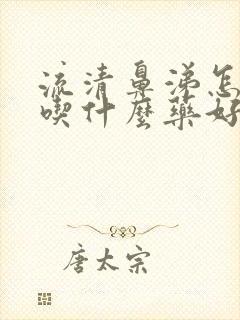 流清鼻涕怎
喫什麼藥好
唐太宗